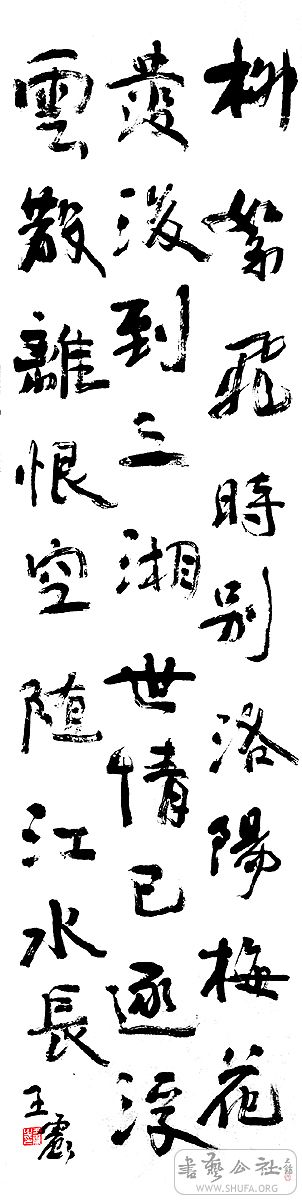 柳絮飛時别洛陽梅花
發後到三湘世情已逐浮
雲散離恨空随江水長
王
書藝公社
WWW.SHUFA.ORG